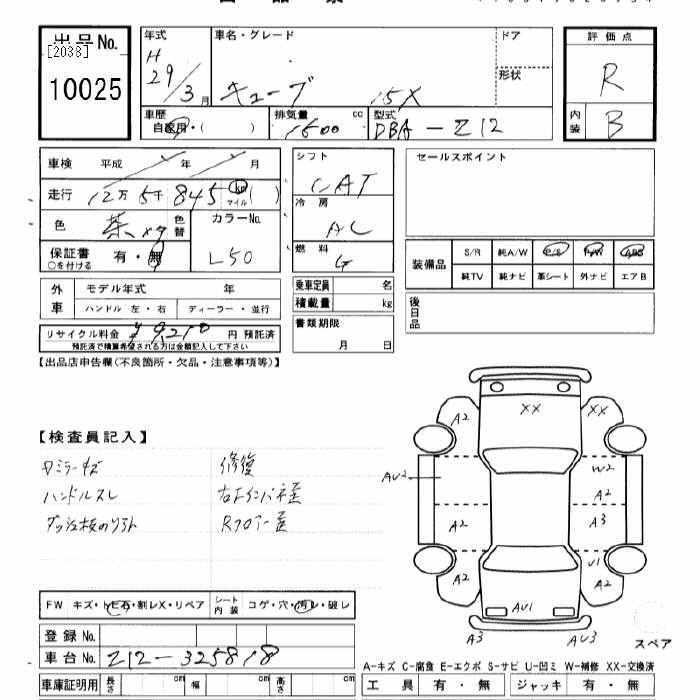 出品No.
[2038]
10025
年式
H
29/3月
車名・グレード
キューブ 15X
ドア
形状
評価点
R
内装
B
車歴
自家用・( )
排気量 cc
1500
型式
DBA-Z12
車検 平成 年 月
走行 12万5千845 km マイル ( )
色 茶 色替
カラーNo.
L50
保証書 有・無
○を付ける
シフト
CAT
冷房
AC
燃料
G
セールスポイント
装備品
S/R 純A/W P/S P/W ABS
純TV 純ナビ 革シート 外ナビ エアB
外車
モデル年式 年
ハンドル 左・右 ディーラー・並行
乗車定員 名
積載量 kg
書類期限
月 日
後日品
リサイクル料金 ¥9,210 円 預託済
預託済で積算希望される方は金額記入して下さい
【出品店申告欄(不良箇所・欠品・注意事項等)】
【検査員記入】
ハンドルスレ
修復
A2
XX
XX
AU2
W2
A2
A2
A3
A2
U1
A2
AU1
A3
AU3
スペア
FW キズ・トビ石・割レX・リペア
シート内装 コゲ・穴・汚レ・破レ
登録No.
車台No. Z12-325818
A-キズ C-腐食 E-エクボ S-サビ U-凹ミ W-補修 XX-交換済
車庫証明用 長さ cm 幅 cm 高さ cm
工具 有・無 ジャッキ 有・無